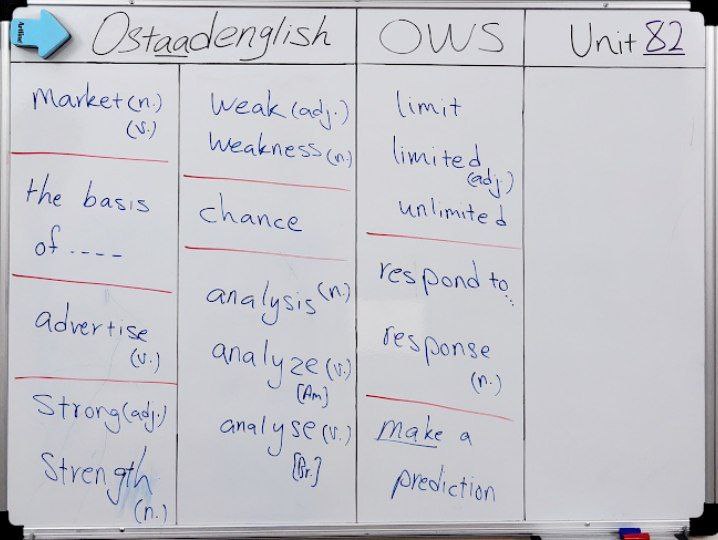 Artline
Ostaadenglish
OWS
Unit 82
Market (n.)
(v.)
the basis
of ----
advertise
(v.)
Strong (adj.)
Strength
(n.)
Weak (adj.)
Weakness (n.)
chance
analysis (n.)
analyze (v.)
[Am]
analyse (v.)
[Br.]
limit
limited
(adj)
unlimited
respond to
response
(n.)
make a
prediction